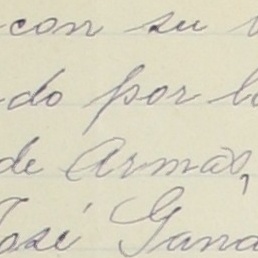 con su
do por
de Armas,
José